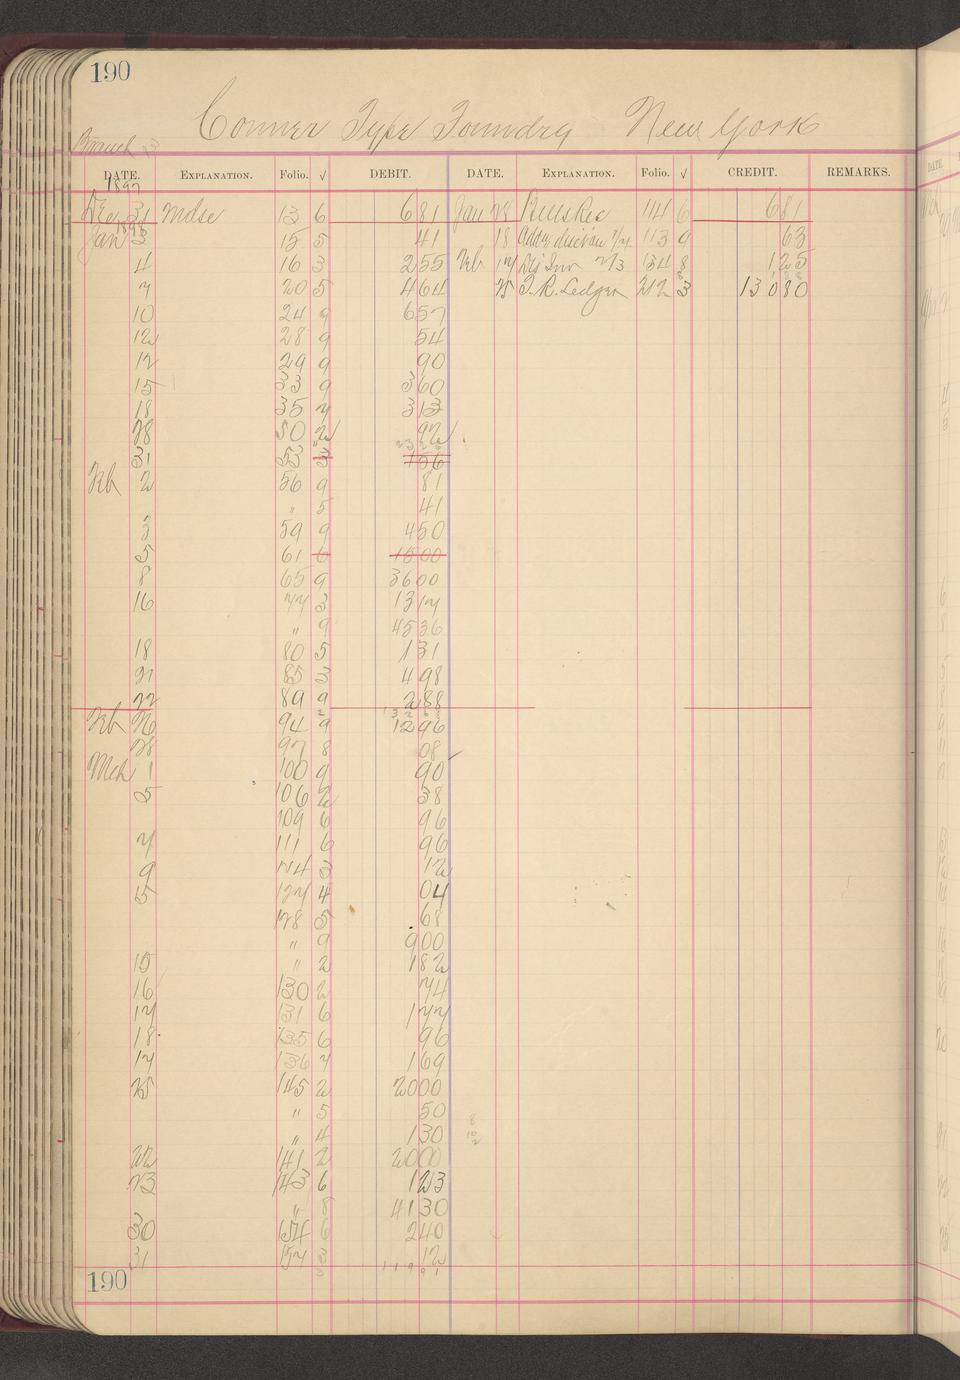 190
Conner Type Foundry New York
Branch
DATE. EXPLANATION. Folio. √ DEBIT. DATE. EXPLANATION. Folio. √ CREDIT. REMARKS.
1897
Dec 31 Mdse 13 6 6 81 Jan 28 114 6 6 81
Jan 3 15 5 41 18 113 9 63
4 16 3 2 55 Feb 17 Dis Inv 2/3 134 8 1 25
7 20 5 4 64 25 T. R. Ledger 212 3 130 80
10 24 9 6 57
12 28 9 54
12 29 9 90
15 33 9 3 60
18 35 7 3 13
28 50 2 92
31 53 3 1 56
Feb 2 56 9 81
" 5 41
3 59 9 4 50
5 61 6 15 00
8 65 9 36 00
16 77 3 13 17
" 9 45 36
18 80 5 1 31
21 85 3 4 98
22 89 9 2 88
Feb 26 94 9 12 96
28 97 8 08
Mch 1 100 9 90
5 106 2 38
109 6 96
7 111 6 96
9 114 3 12
15 127 4 04
128 5 68
" 9 9 00
15 " 2 1 82
16 130 2 74
17 131 6 1 77
18 135 6 96
17 136 7 1 69
25 145 2 20 00
" 5 50
" 4 1 30
22 141 2 20 00
23 143 6 1 23
" 8 41 30
30 154 6 2 40
31 157 3 12
190